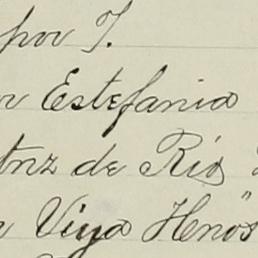 por J.
or Estefania
tnz de Rio
n Viya Henos